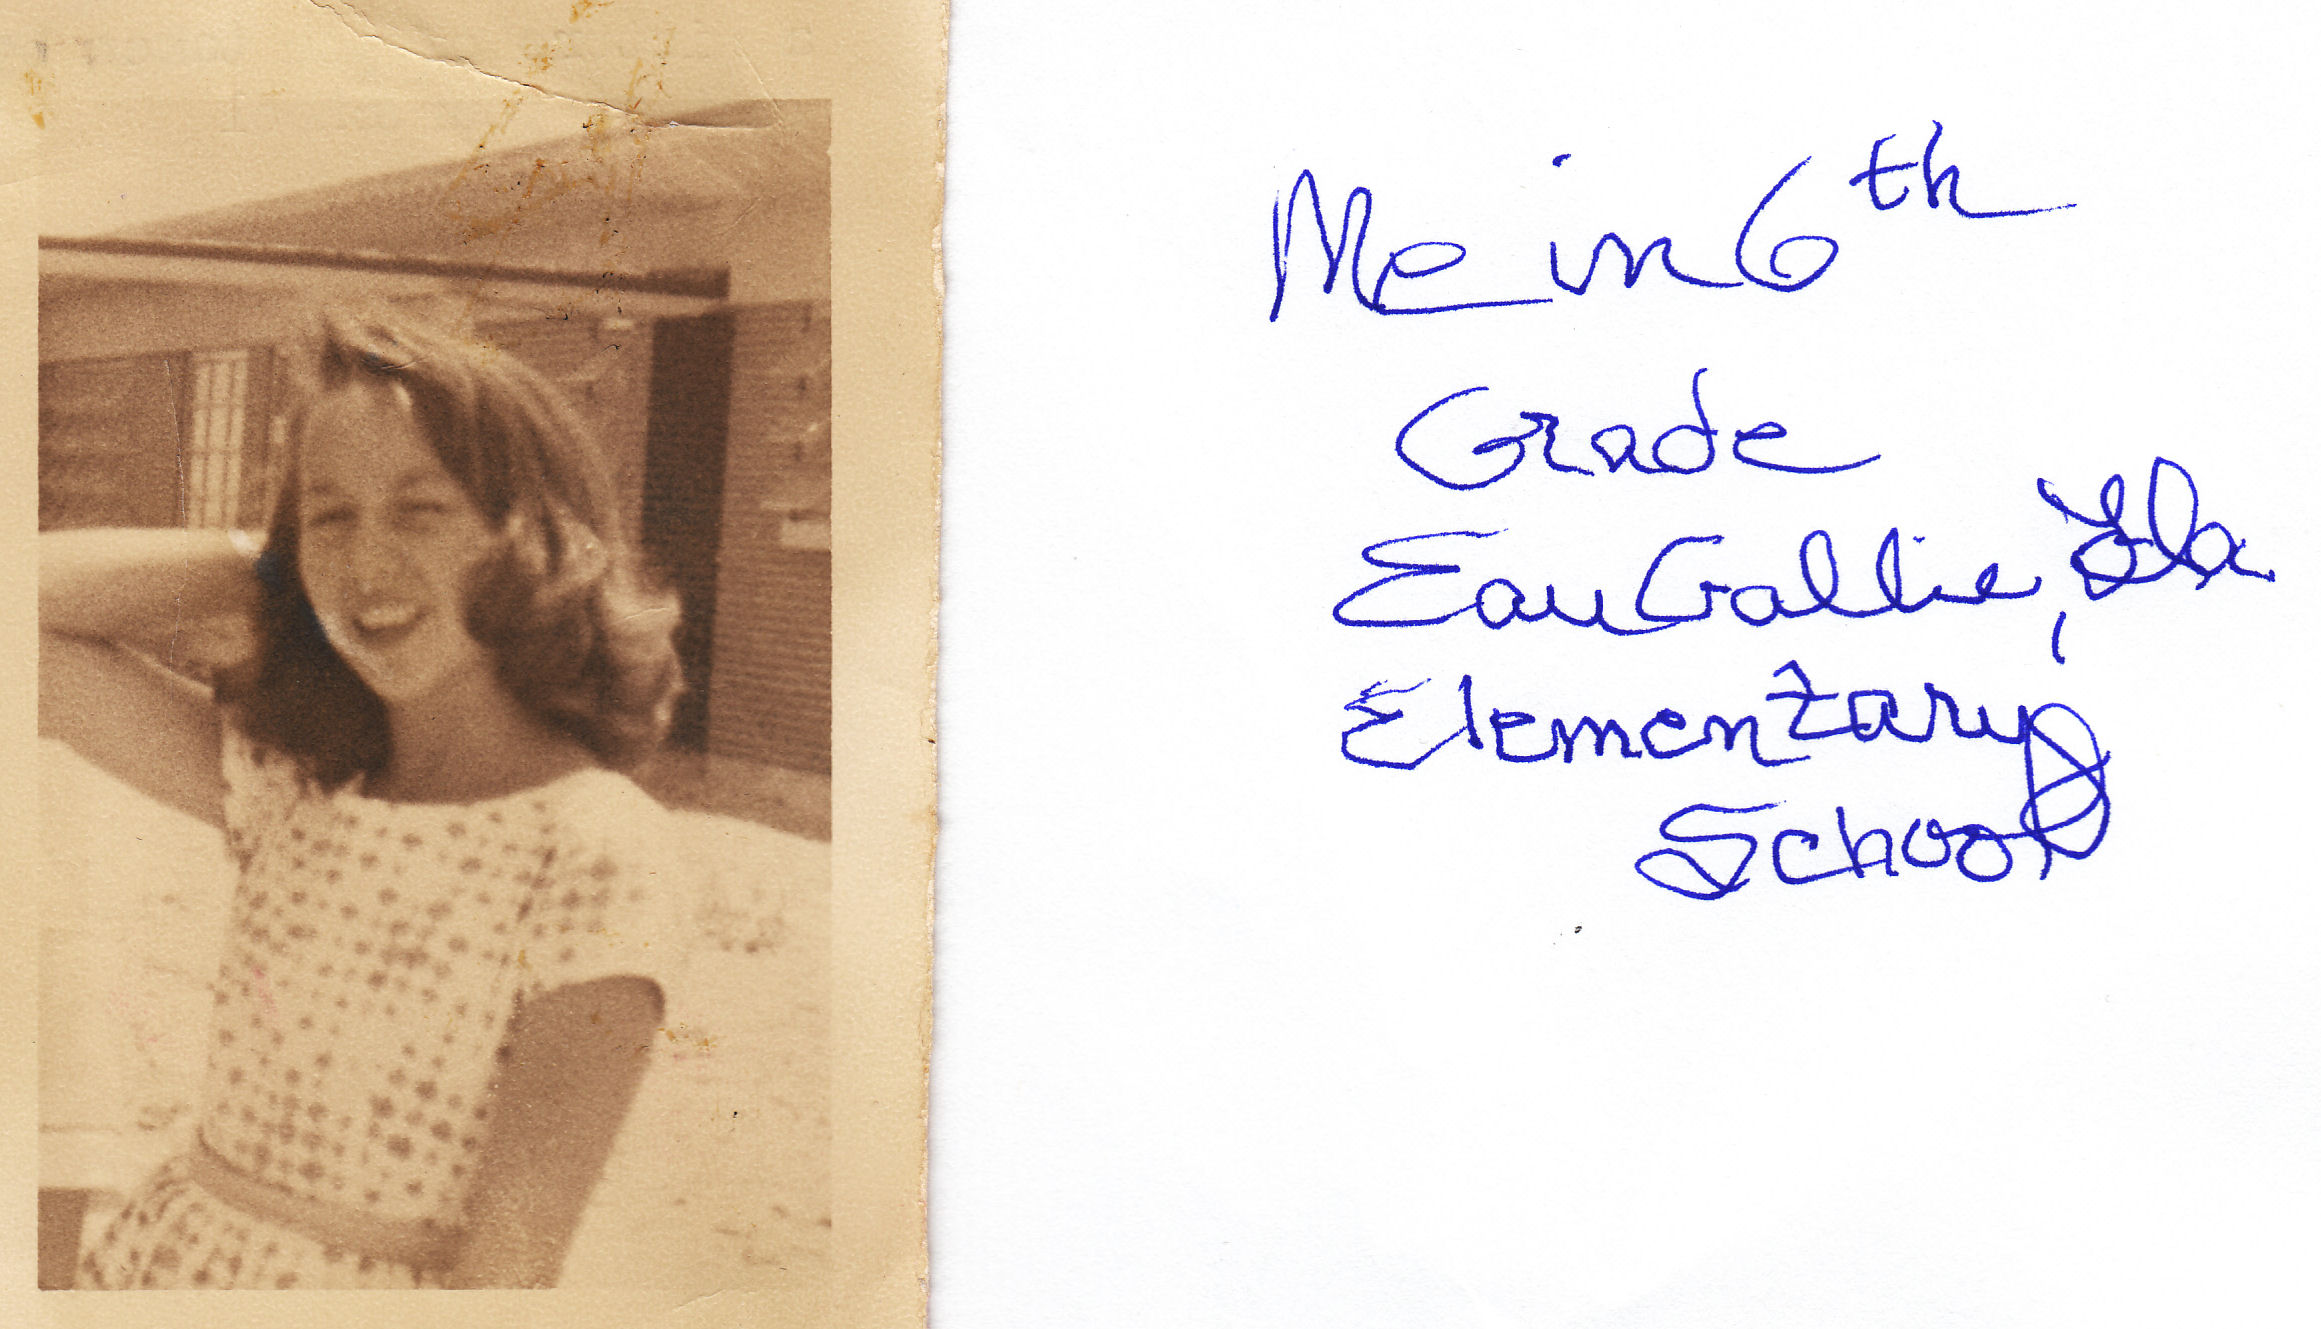 Me in 6th
Grade
Eau Gallie, Fla
Elementary
School